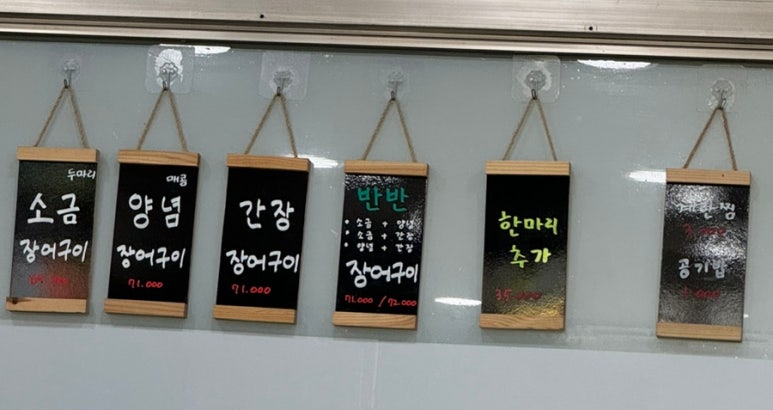 두마리
소금
장어구이
매콤
양념
장어구이
71.000
간장
장어구이
71.000
반반
• 소금 + 양념
• 소금 + 간장
• 양념 + 간장
장어구이
71.000 / 72.000
한마리
추가
35.000
공기밥